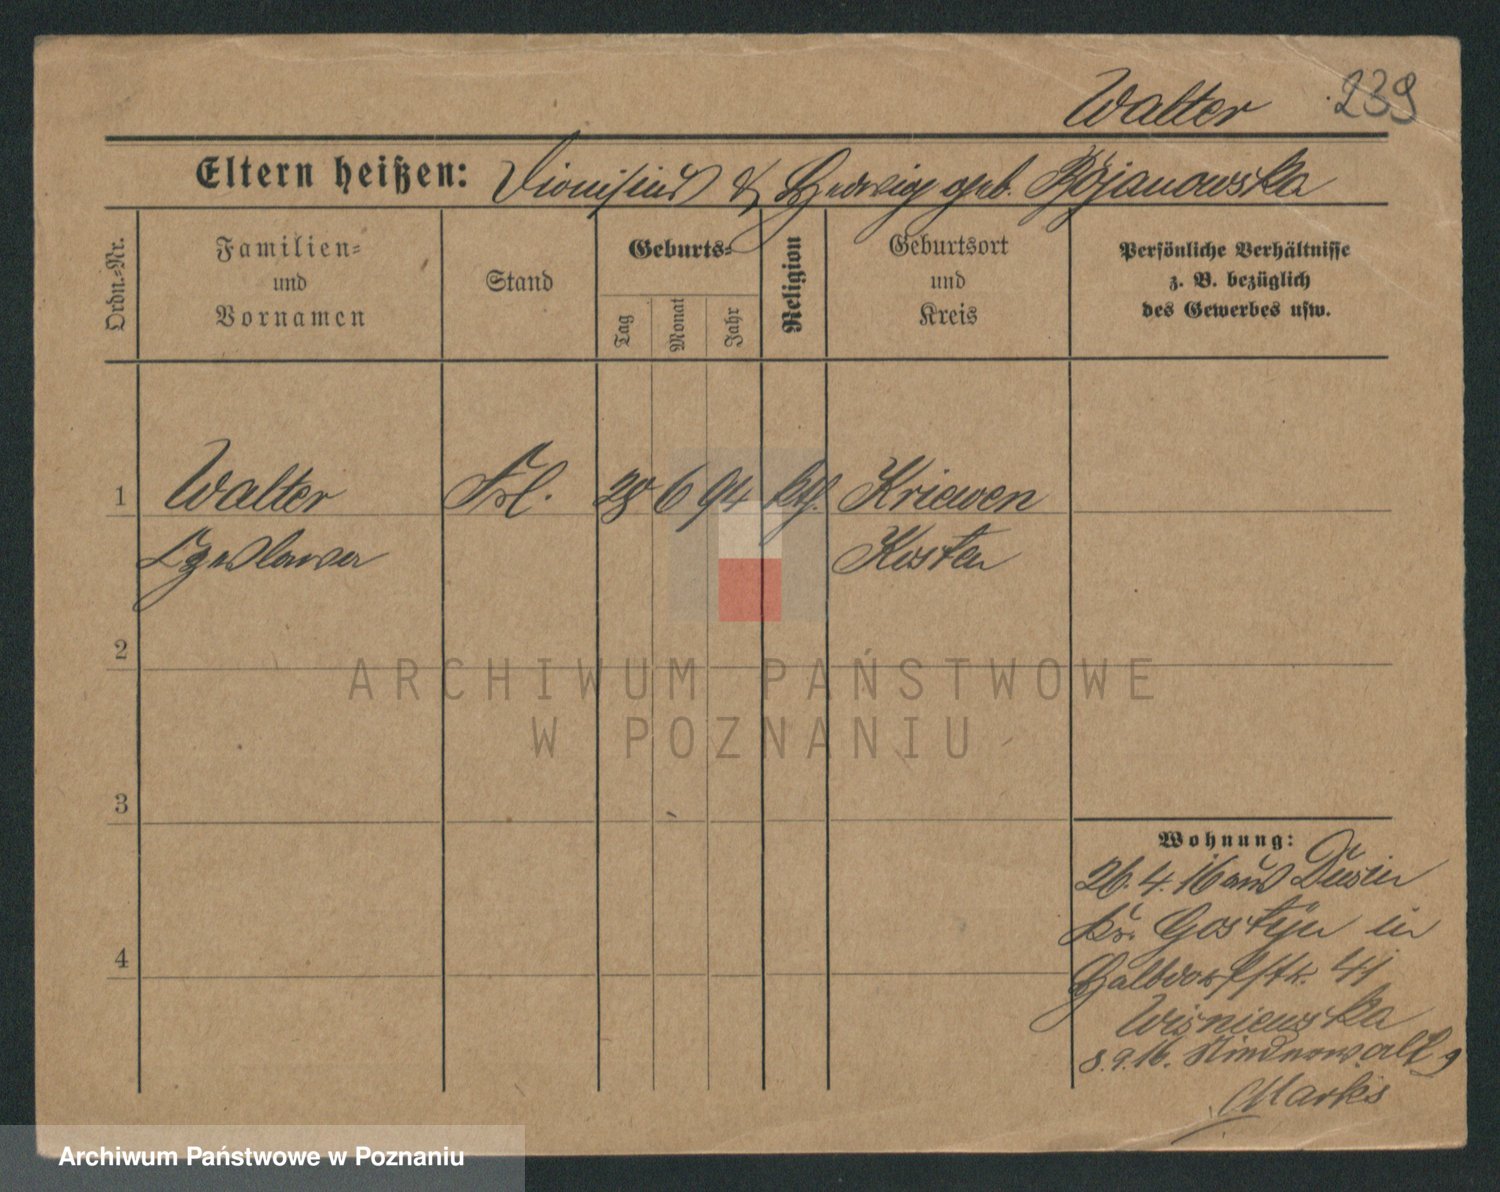 Walter 239
Eltern heißen: Dionisius & Hedwig geb. Bojanowska
Ordn.-Nr.
Familien-
und
Vornamen
Stand
Geburts-
Tag
Monat
Jahr
Religion
Geburtsort
und
Kreis
Persönliche Verhältnisse
z. B. bezüglich
des Gewerbes usw.
1 Walter Frl. 28 6 94 kth. Kriewen
Kosten
2
3
4
Wohnung:
26. 4. 16 aus
Kr. Gostyn in
Halbdorfstr. 41
Wisniewska
8.9.16. Niederwall 9
Marks
ARCHIWUM PAŃSTWOWE
W POZNANIU
Archiwum Państwowe w Poznaniu